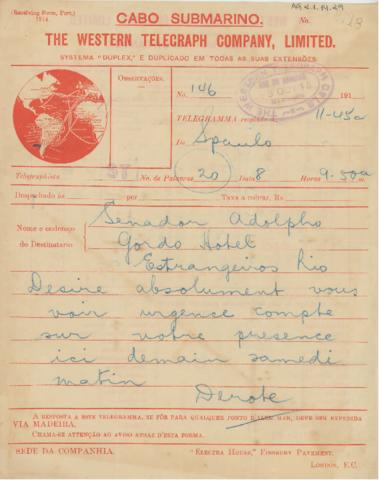 (Receiving Form, Port.)
1914.
AG 2.1.14.29
CABO SUBMARINO.
No.
THE WESTERN TELEGRAPH COMPANY, LIMITED.
SYSTEMA "DUPLEX," E DUPLICADO EM TODAS AS SUAS EXTENSÕES
OBSERVAÇÕES.
No. 146 191
TELEGRAMMA 11-45a
De Spaulo
Telegraphista No. de Palavras 20 Data 8 Horas 9.50a m
Despachado ás por Taxa a cobrar, Rs.
Nome e endereço
do Destinatario
Senador Adolpho
Gordo Hotel
Estrangeiros Rio
Desire absolument vous
voir urgence compte
sur votre presence
ici demain samedi
matin
Derote
A RESPOSTA A ESTE TELEGRAMMA, SE FÔR PARA QUALQUER PONTO D'ALÉM MAR, DEVE SER EXPEDIDA
VIA MADEIRA.
CHAMA-SE ATTENÇÃO AO AVISO ATRAZ D'ESTA FORMA.
SEDE DA COMPANHIA. "ELECTRA HOUSE," FINSBURY PAVEMENT.
LONDON, E.C.